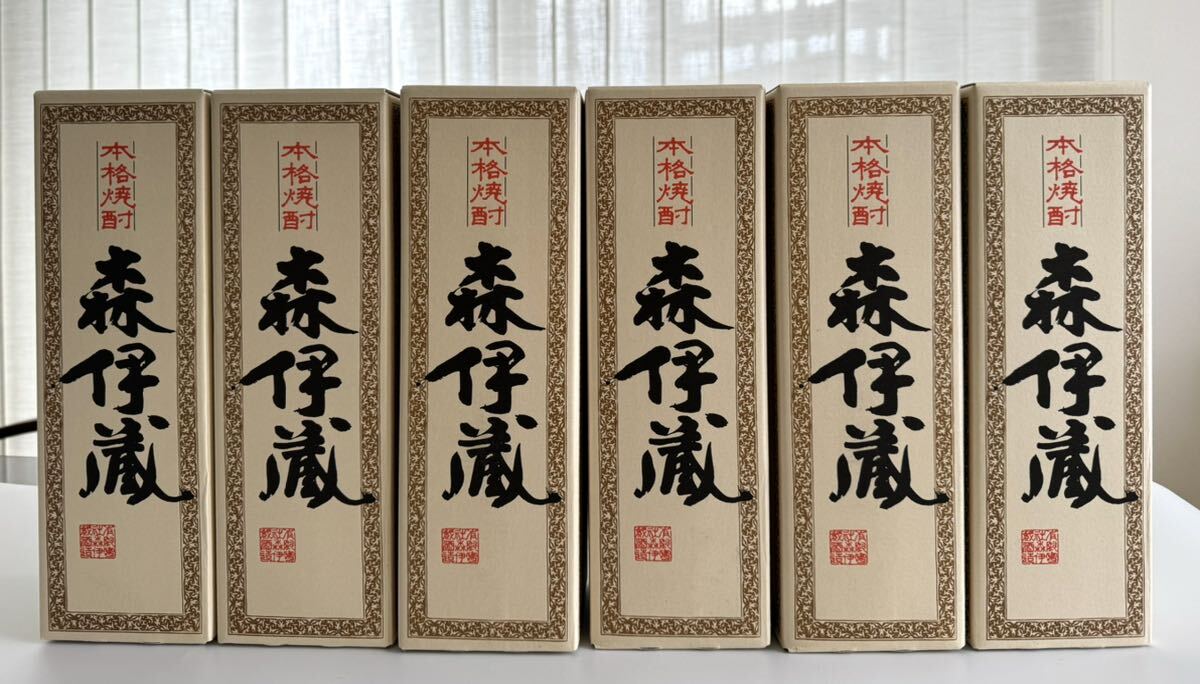 本格焼酎
森伊蔵
本格焼酎
森伊蔵
本格焼酎
森伊蔵
本格焼酎
森伊蔵
本格焼酎
森伊蔵
本格焼酎
森伊蔵